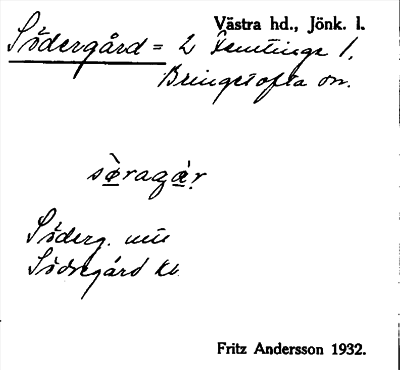 Västra hd., Jönk. l.
Södergård = 2 Femtinge 1,
Bringetofta sn.
sø̀ragår
Söderg. mil
Södregård kb
Fritz Andersson 1932.